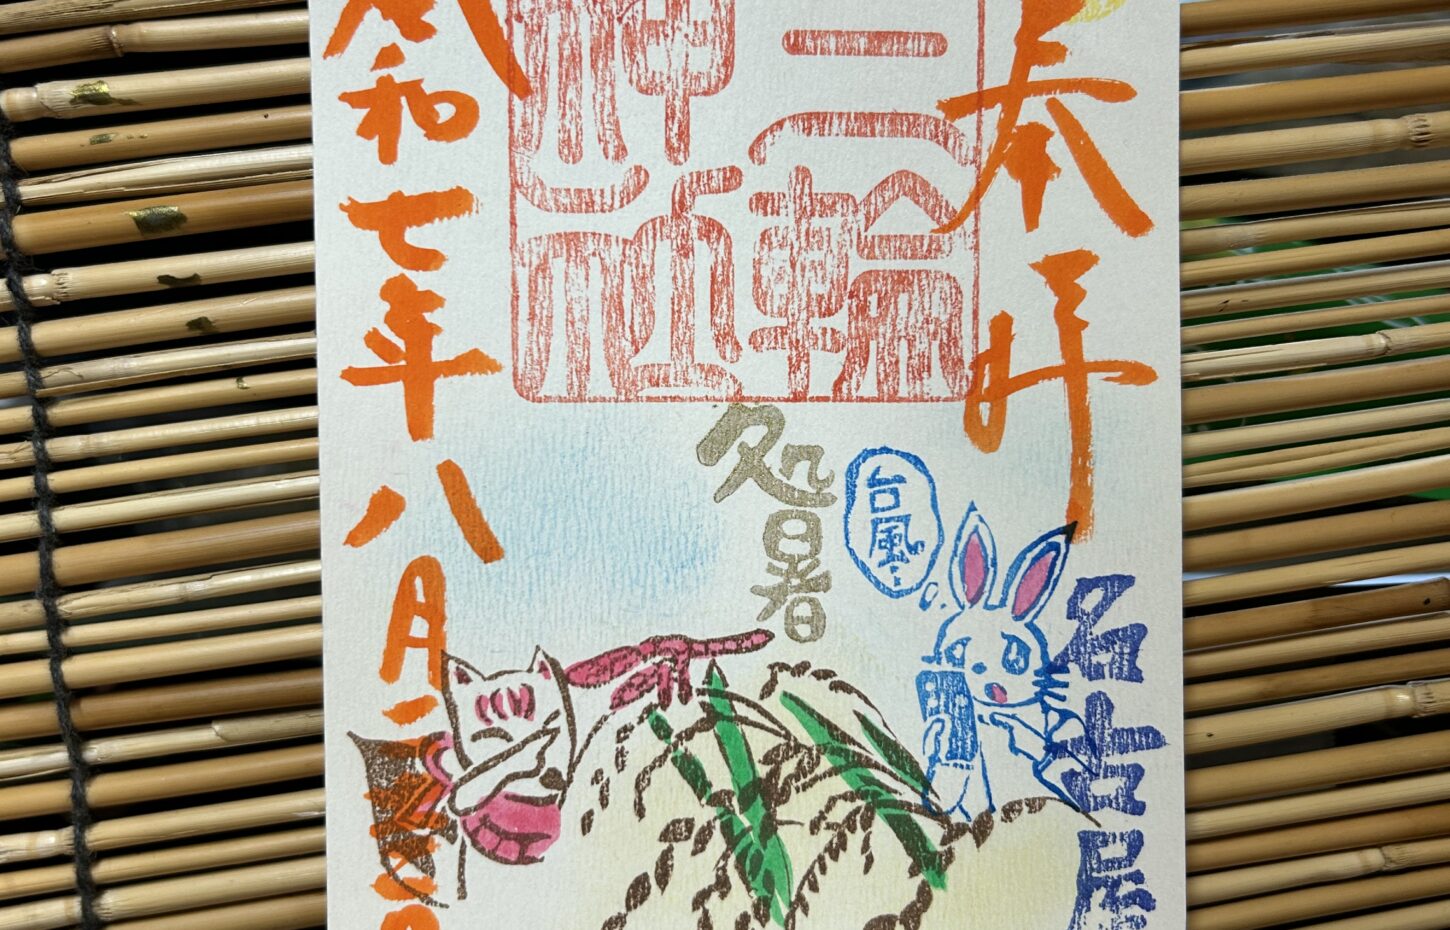 奉拝
名古屋
三輪
神社
台風…
処暑
令和七年八月